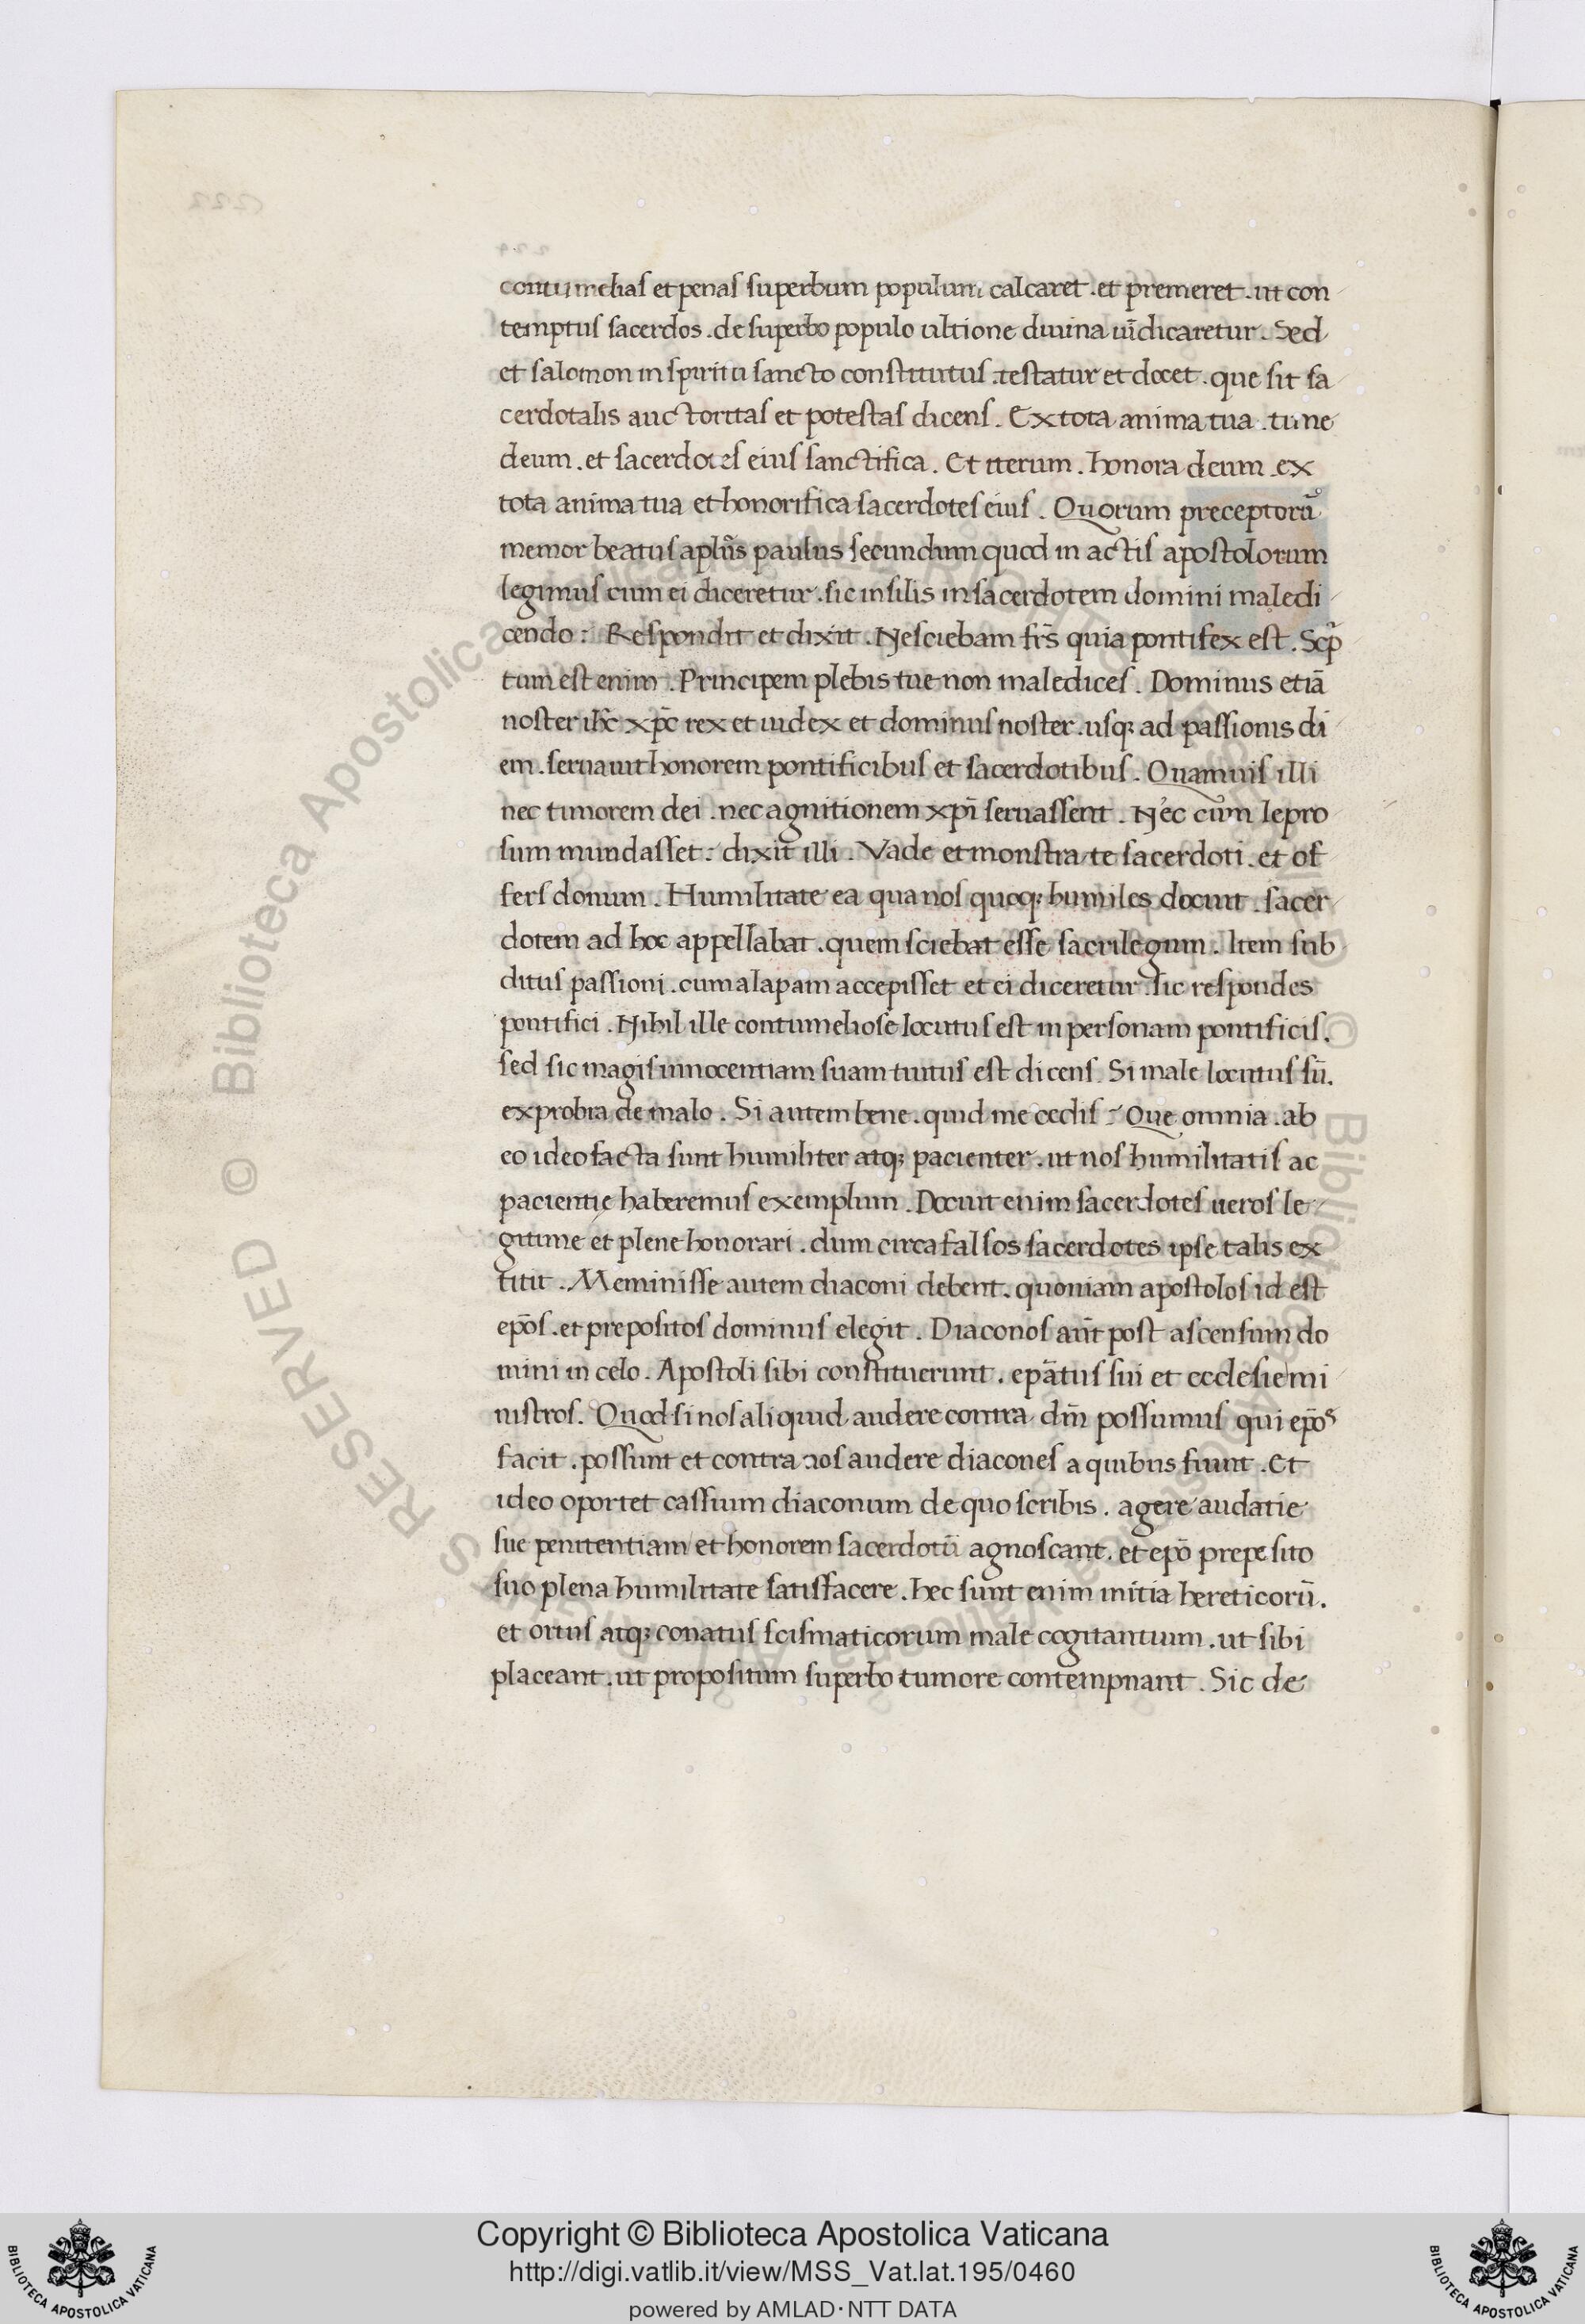 contumelias et penas superbum populum calcaret . et premeret . ut con
temptus sacerdos . de superbo populo ultione diuina uīdicaretur . Sed
et salomon in spiritu sancto constitutus . testatur et docet . que sit sa
cerdotalis auctoritas et potestas dicens . Ex tota anima tua . time
deum . et sacerdotes eius sanctifica . Et iterum . honora deum . ex
tota anima tua et honorifica sacerdotes eius . Quorum preceptorū
memor beatus aplūs paulus secundum quod in actis apostolorum
legimus cum ei diceretur . sic insilis in sacerdotem domini maledi
cendo : Respondit et dixit . Nesciebam frs̄ quia pontifex est . Scp̄
tum est enim . Principem plebis tue non maledices . Dominus etiā
noster ihc̄ xpc̄ rex et iudex et dominus noster . usq; ad passionis di
em . seruauit honorem pontificibus et sacerdotibus . Quamuis illi
nec timorem dei . nec agnitionem xpī seruassent . Nec cum lepro
sum mundasset : dixit illi . Vade et monstra te sacerdoti . et of
fers donum . Humilitate ea qua nos quoq; humiles docuit . sacer
dotem ad hoc appellabat . quem sciebat esse sacrilegum . Item sub
ditus passioni . cum alapam accepisset et ei diceretur . sic respondes
pontifici . Nihil ille contumeliose locutus est in personam pontificis .
sed sic magis innocentiam suam tuitus est dicens . Si male locutus sū .
exprobra de malo . Si autem bene . quid me cedis : Que omnia . ab
eo ideo facta sunt humiliter atq; pacienter . ut nos humilitatis ac
pacientię haberemus exemplum . Docuit enim sacerdotes ueros le
gitime et plene honorari . dum circa falsos sacerdotes ipse talis ex
titit . Meminisse autem diaconi debent . quoniam apostolos id est
epōs . et prepositos dominus elegit . Diaconos aūt post ascensum do
mini in celo . Apostoli sibi constituerunt . epātus sui et ecclesie mi
nistros . Quod si nos aliquid audere contra dm̄ possumus qui epōs
facit . possunt et contra nos audere diacones a quibus fiunt . Et
ideo oportet cassium diaconum de quo scribis . agere audatie
sue penitentiam et honorem sacerdotū agnoscant . et epō preposito
suo plena humilitate satisfacere . hec sunt enim initia hereticorū .
et ortus atq; conatus scismaticorum male cogitantium . ut sibi
placeant . ut propositum superbo tumore contempnant . Sic de
Copyright © Biblioteca Apostolica Vaticana
http://digi.vatlib.it/view/MSS_Vat.lat.195/0460
powered by AMLAD·NTT DATA
BIBLIOTECA APOSTOLICA VATICANA
BIBLIOTECA APOSTOLICA VATICANA